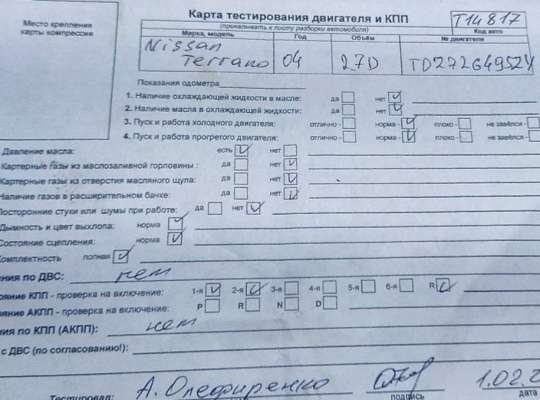 Место крепления
карты компрессии
Карта тестирования двигателя и КПП
T14817
(прикалывать к посту разборки автомобиля)
Код авто
Марка, модель
Год
Объём
№ двигателя
Nissan
Terrano
04
2.7D
TD27264952Y
Показания одометра
1. Наличие охлаждающей жидкости в масле: да нет
2. Наличие масла в охлаждающей жидкости: да нет
3. Пуск и работа холодного двигателя: отлично - норма - плохо - не завёлся -
4. Пуск и работа прогретого двигателя: отлично - норма - плохо - не завёлся -
Давление масла: есть нет
Картерные газы из маслозаливной горловины : да нет
Картерные газы из отверстия масляного щупа: да нет
Наличие газов в расширительном бачке: да нет
Посторонние стуки или шумы при работе: да нет
Дымность и цвет выхлопа: норма
Состояние сцепления: норма
Комплектность полная
ения по ДВС: нет
ояние КПП - проверка на включение: 1-я 2-я 3-я 4-я 5-я 6-я R
ояние АКПП - проверка на включение: P R N D
ния по КПП (АКПП): нет
с ДВС (по согласованию!):
Тестировал: А. Олефиренко
подпись
1.02.2
дата